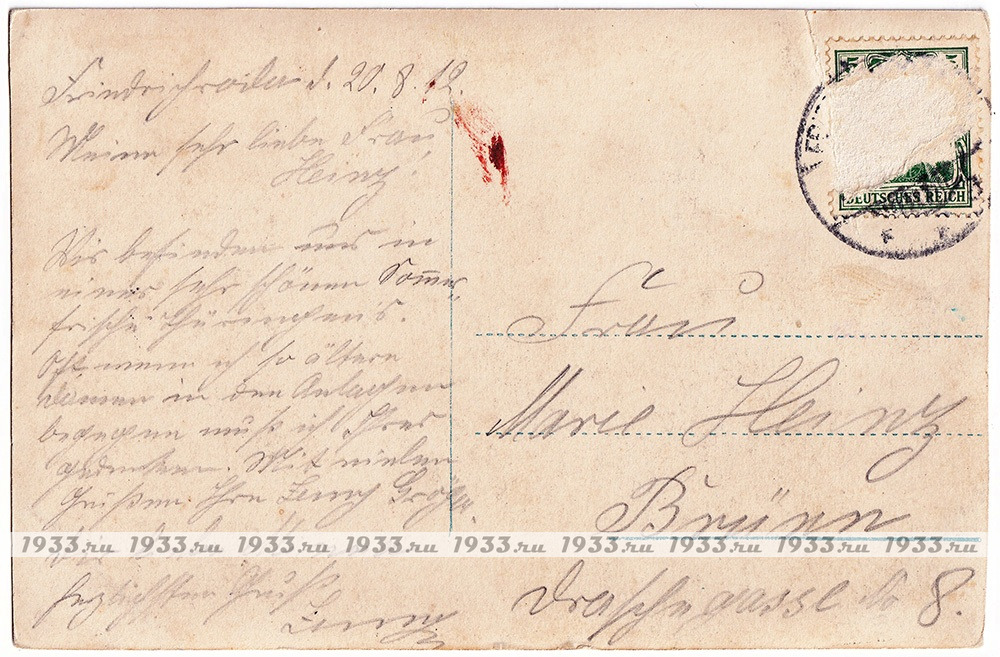 Friedrichroda d. 20. 8. 12.
Meine sehr liebe Frau
Heinz!
Wir befinden uns in
einer sehr schönen Sommer
frische Thüringens.
Oft wenn ich so ältere
Damen in den Anlagen
begegne muß ich Ihrer
gedenken. Mit vielen
Grüßen Ihre Jenny
herzlichsten Gruß
Jenny
DEUTSCHES REICH
Frau
Marie Heinz
Brünn
Draschegasse No 8.
1933.ru 1933.ru 1933.ru 1933.ru 1933.ru 1933.ru 1933.ru 1933.ru 1933.ru